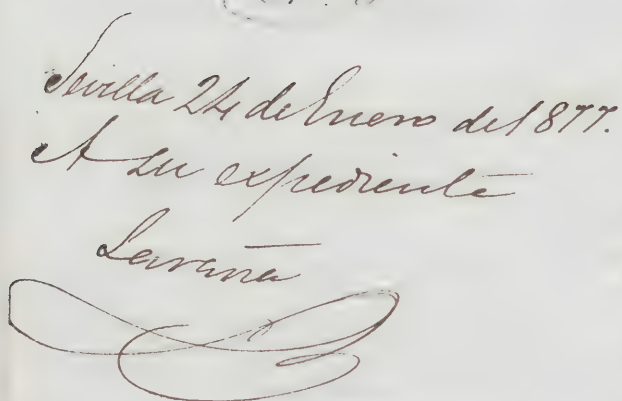 Sevilla 24 de Enero de 1877.
A su expediente
Laraña